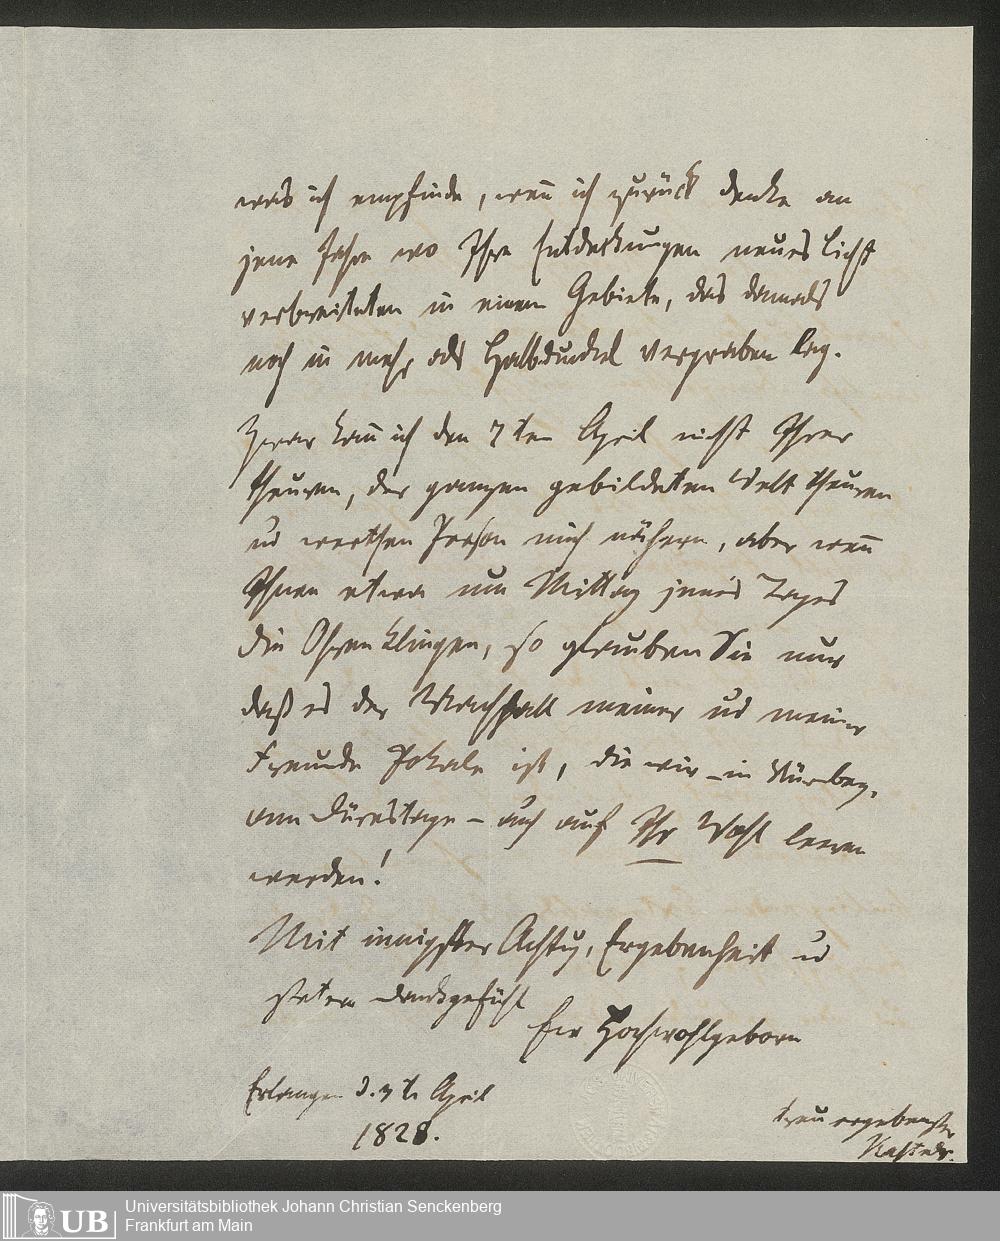 was ich empfinde, wen̄ ich zurück denke an
jene Jahre wo Ihre Entdeckungen neues Licht
verbreiteten in einem Gebiete, das damals
noch in mehr, od Halbdunkel vergraben lag.
Zwar kan̄ ich den 7ten April nicht Ihrer
theuren, der ganzen gebildeten Welt theuren
ud werthen Person mich nähern, aber wen̄
Ihnen etwa um Mittag jenes Tages
die Ohren klingen, so glauben Sie nur
daß es der Nachhall meiner ud meiner
Freunde Pokale ist, die wir – in Nürnberg,
am Dürerstage – auch auf Ihr Wohl leeren
werden!
Mit innigster Achtg, Ergebenheit ud
stetem Dankgefühl
Ew Hochwohlgeborn
Erlangen d. 3t April
1828.
treu ergebenster
Kastner.
Universitätsbibliothek Johann Christian Senckenberg
Frankfurt am Main
UB